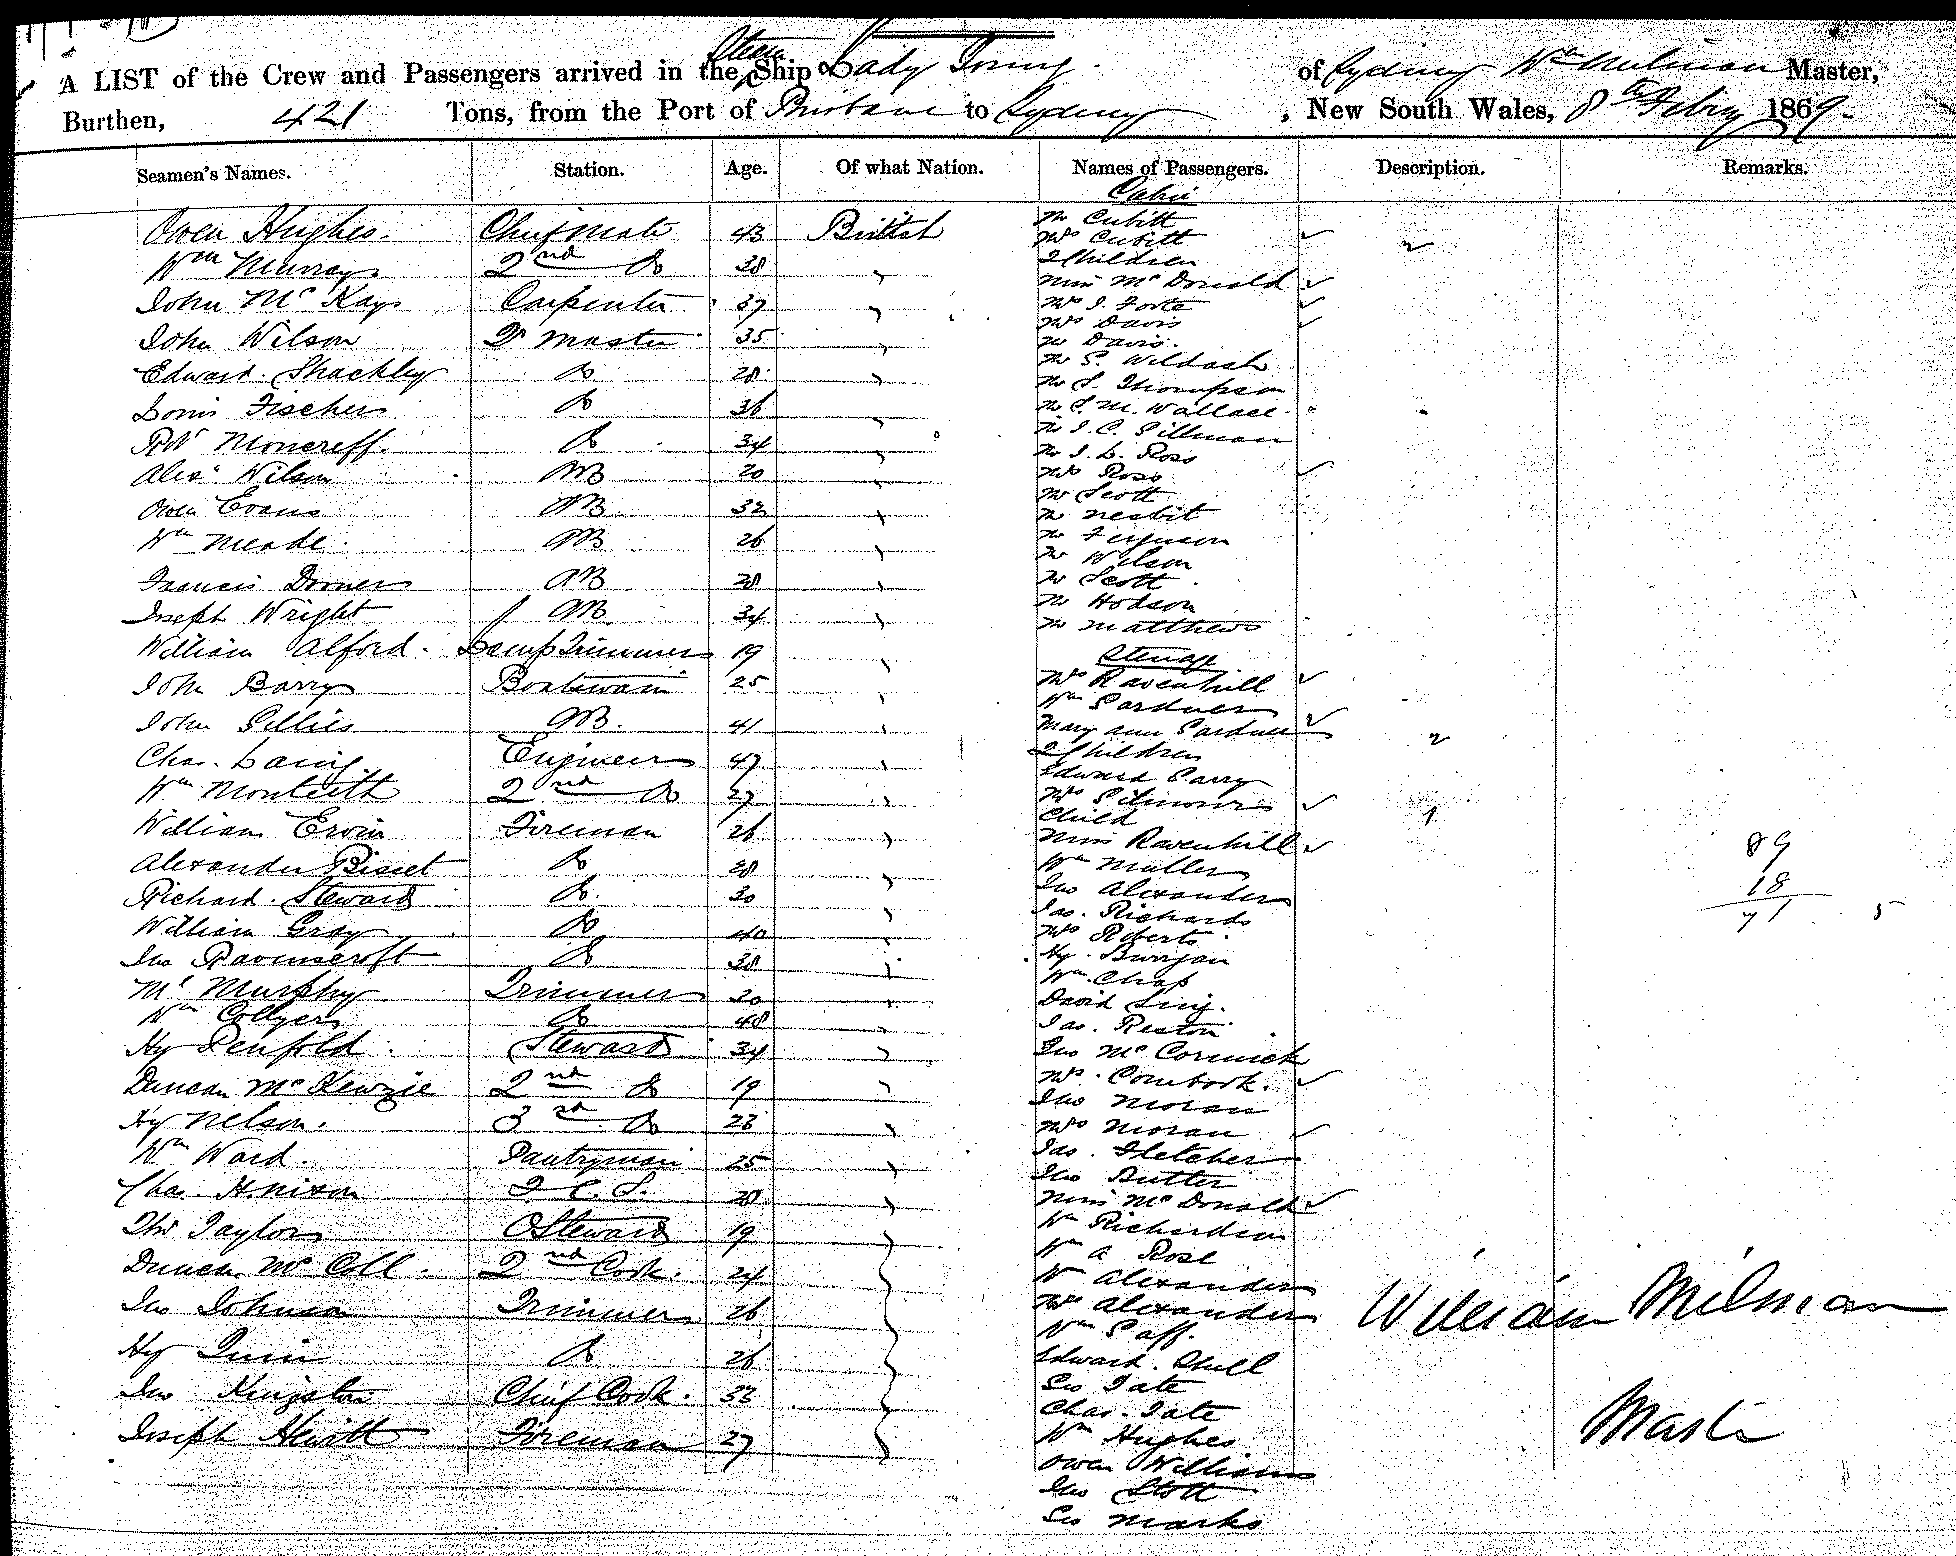 A LIST of the Crew and Passengers arrived in the Steam Ship Lady Young of Sydney Wm Milman Master,
Burthen, 421 Tons, from the Port of Brisbane to Sydney, New South Wales, 8th Febry 1869.
Seamen's Names. Station. Age. Of what Nation. Names of Passengers. Description. Remarks.
Owen Hughes. Chief Mate 43 British
Wm Murray 2nd Do 28 "
John McKay Carpenter 37 "
John Wilson Qr Master 35 "
Edward Shackley Do 28 "
Louis Fischer Do 36 "
Rbt Moncreff. Do 34 "
Alexr Wilson AB 20 "
Owen Evans AB 32 "
Wm Meade AB 26 "
Francis Dorner AB 28 "
Joseph Wright AB 34 "
William Alford. Lamp Trimmer 19 "
John Barry Boatswain 25 "
John Gillies AB. 41 "
Chas. Laing Engineer 47 "
Wm Monteith 2nd Do 27 "
William Ervin Fireman 26 "
Alexander Bisset Do 28 "
Richard Steward Do 30 "
William Gray Do 40 "
Jno Ravenscroft Do 38 "
Ml Murphy Trimmer 20 "
Wm Collyer Do 48 "
Hy Penfold Steward 34 "
Duncan McKenzie 2nd Do 19 "
Hy Nelson. 3rd Do 23 "
Wm Ward. Pantryman 25 "
Chas. H. Nixon 28 "
Thos Taylor Steward 19 "
Duncan McColl. 2nd Cook. 24 "
Jno Johnson Trimmer 26 "
Hy Quin Do 26 "
Jno Kingston Chief Cook. 32 "
Joseph Hewitt Fireman 27 "
Cabin
Mr Cubitt
Mrs Cubitt
2 Children 2
Miss McDonald
Mrs J. Foote
Mrs Davis
Mr Davis.
Mr S. Wildash
Mr S. Thompson
Mr S. M. Wallace
Mr J. C. Sillman
Mr J. L. Ross
Mrs Ross
Mr Scott
Mr Nesbit
Mr Ferguson
Mr Wilson
Mr Scott
Mr Hodson
Mr Matthews
Steerage
Mrs Ravenhill
Wm Gardner
Mary Ann Gardner
2 Children 2
Edward Parry
Mrs Gilmour
Child 1
Miss Ravenhill
Wm Muller
Jno Alexander
Jas. Richards
Mrs Roberts
Hy.
Wm Chap
David Ling.
Jas. Reston
Jno McCormick
Mrs Cornbook.
Jno Moran
Mrs Moran
Jas. Fletcher
Jno Butler
Miss McDonald
Wm Richardson
Wm A Rose
Wm Alexander
Mrs Alexander
Wm Gaff.
Edward Shell
Geo Tate
Chas. Tate
Wm Hughes
Owen Williams
Jno Stott
Geo Marks
89
18
71 5
William Milman
Master